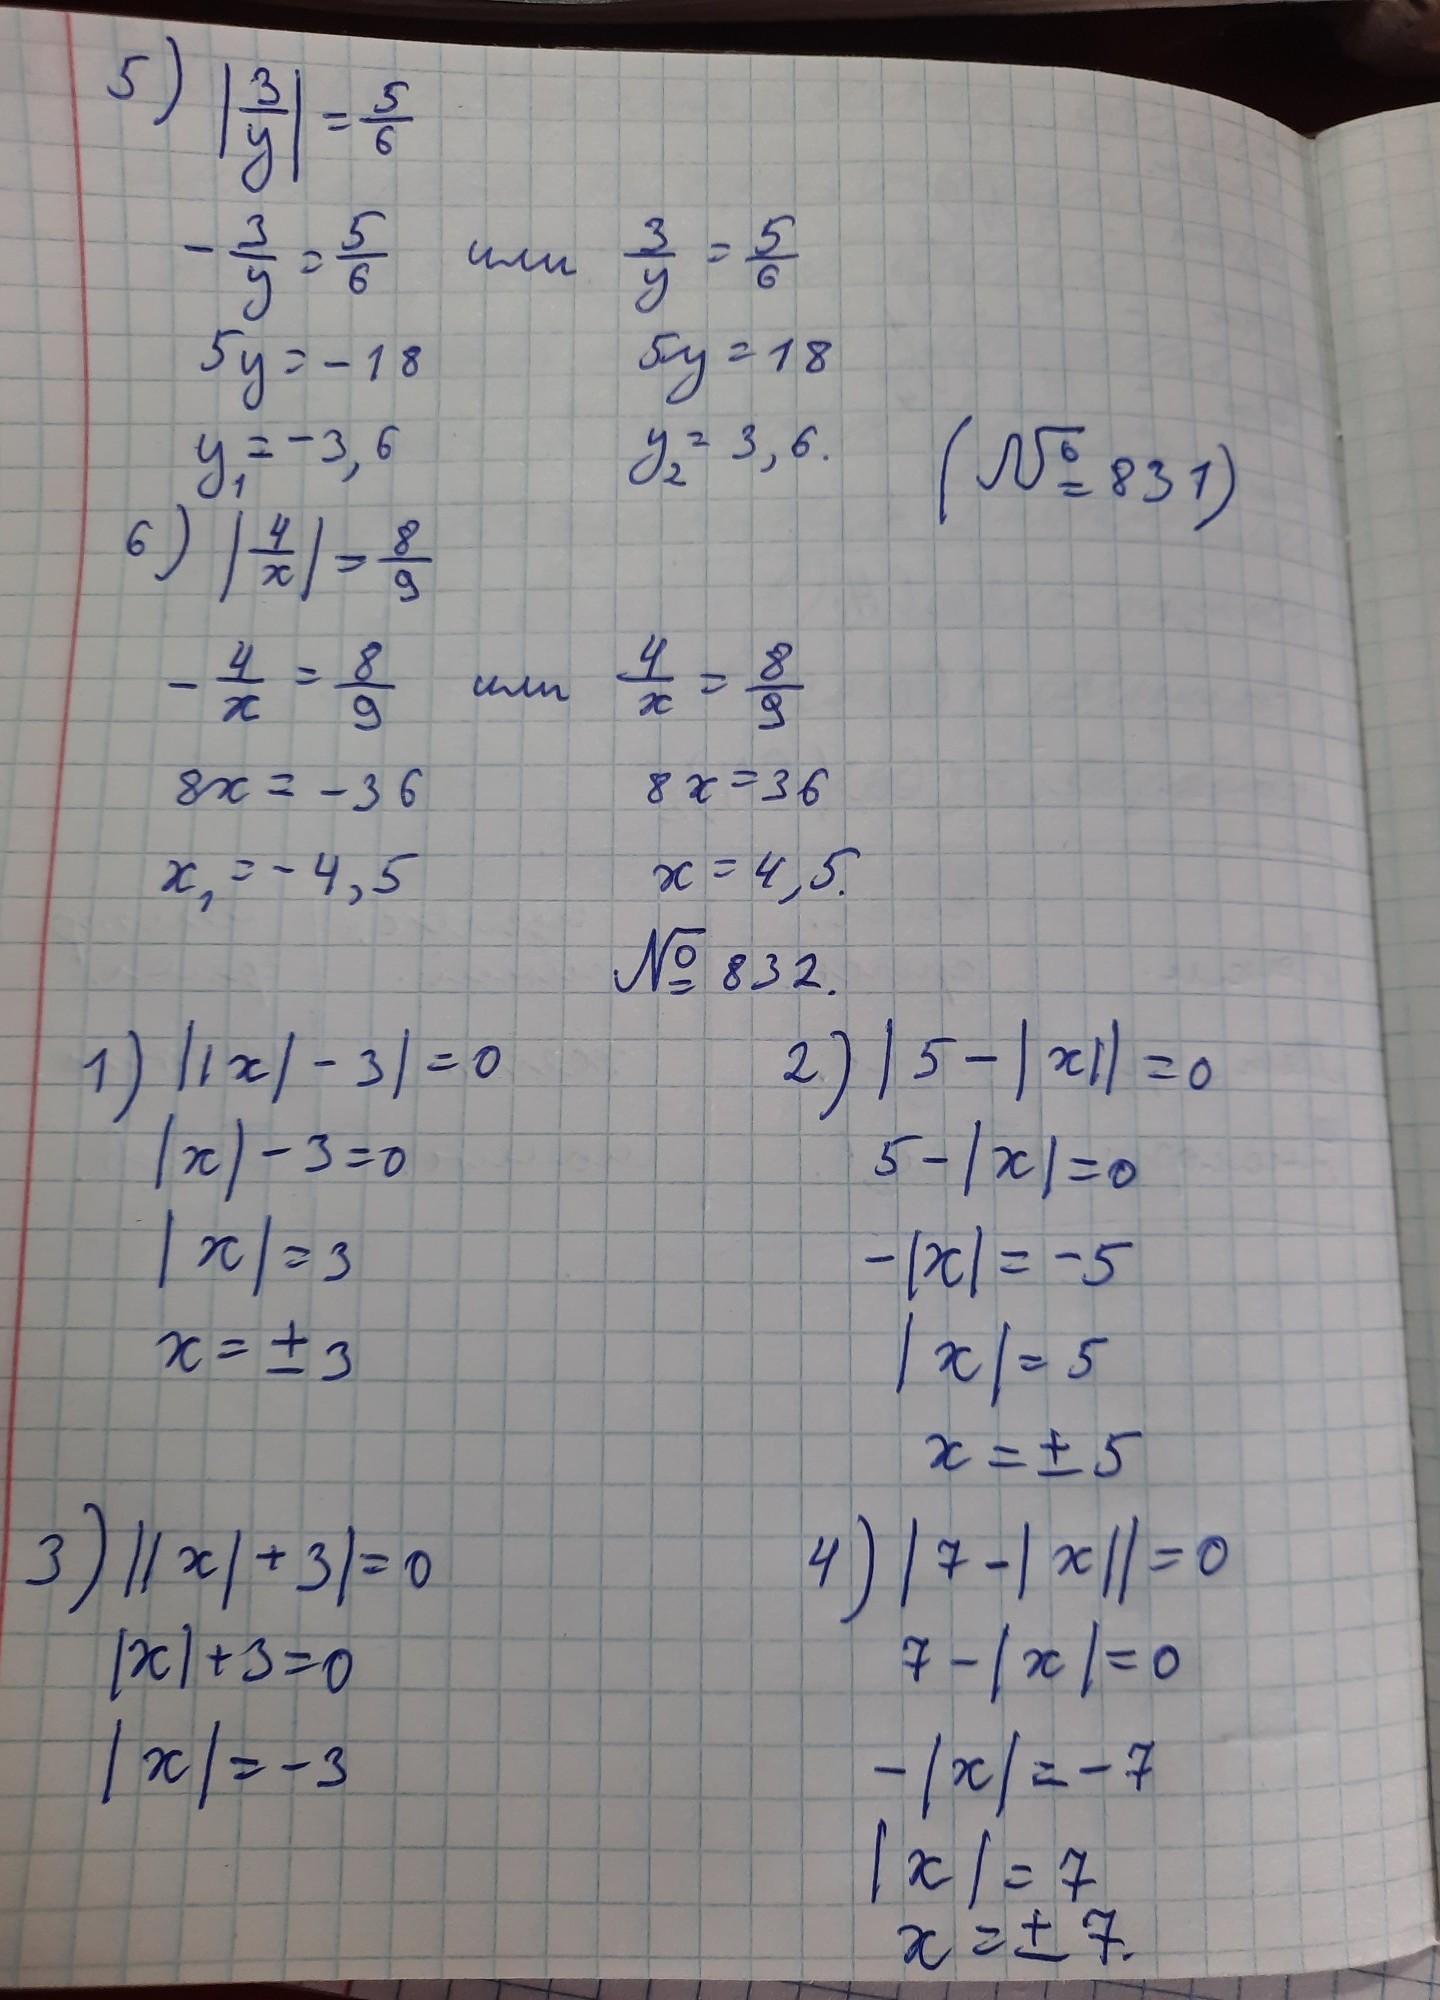 5) |3/y| = 5/6
- 3/y = 5/6 или 3/y = 5/6
5y = -18 5y = 18
y₁ = -3,6 y₂ = 3,6. (№ 831)
6) |4/x| = 8/9
- 4/x = 8/9 или 4/x = 8/9
8x = -36 8x = 36
x₁ = -4,5 x = 4,5.
№ 832.
1) ||x| - 3| = 0
|x| - 3 = 0
|x| = 3
x = ± 3
2) |5 - |x|| = 0
5 - |x| = 0
-|x| = -5
|x| = 5
x = ± 5
3) ||x| + 3| = 0
|x| + 3 = 0
|x| = -3
4) |7 - |x|| = 0
7 - |x| = 0
-|x| = -7
|x| = 7
x = ± 7.